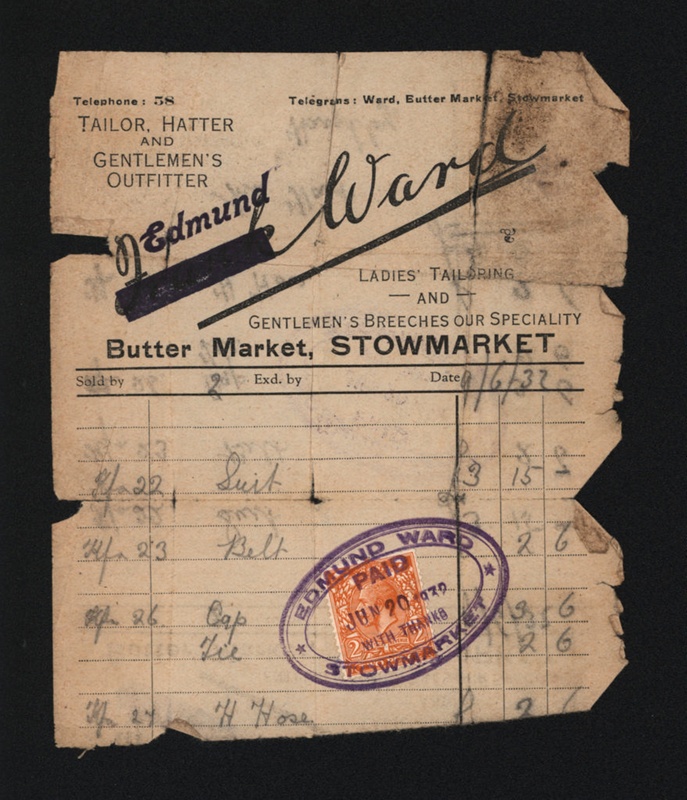 Telephone : 58
Telegrams : Ward, Butter Market, Stowmarket
TAILOR, HATTER
AND
GENTLEMEN'S
OUTFITTER
Edmund
Ward
LADIES' TAILORING
— AND —
GENTLEMEN'S BREECHES OUR SPECIALITY
Butter Market, STOWMARKET
Sold by 2 Exd. by Date /6/32
22 Suit 3 15
23 Belt 2 6
26 Cap 3 6
Tie 2 6
27 H Hose 2 6
EDMUND WARD
PAID
JUN 20 1932
WITH THANKS
STOWMARKET